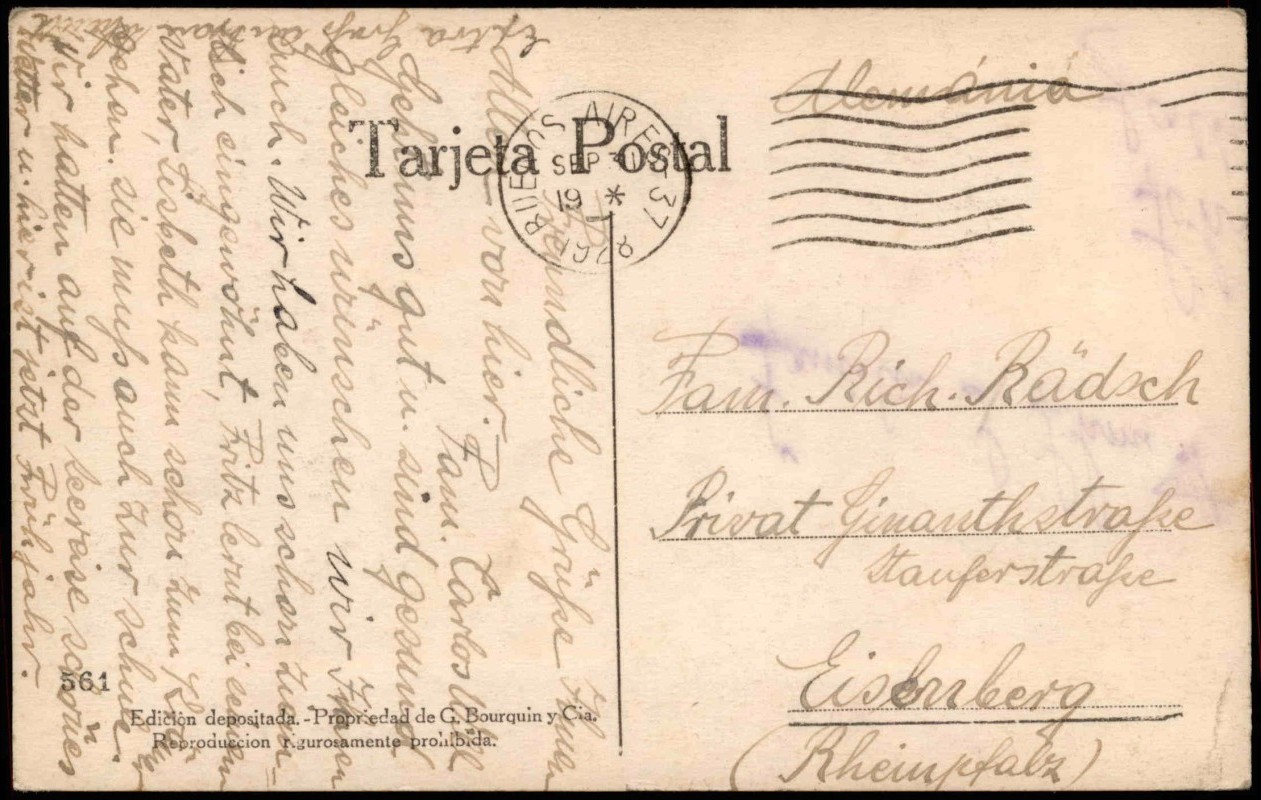 Tarjeta Postal
BUENOS AIRES
SEP
19
37
Alemánia
Fam. Rich. Rädsch
Privat Ginanthstraße
Stauferstraße
Eisenberg
(Rheinpfalz)
Freundliche Grüße Ihnen
Allen von hier. Fam. Carlos
Geht uns gut u. sind gesund
gleiches wünschen wir Ihnen
auch. Wir haben uns schon ziem-
lich eingewöhnt, Fritz lernt bei seinem
Vater, Lisbeth kann schon zum
gehen. sie muß auch zur schule.
Wir hatten auf der seereise schönes
Wetter u. hier ist jetzt Frühjahr.
Extra Gruß
561
Edición depositada.-Propriedad de G. Bourquin y Cia.
Reproduccion rigurosamente prohibida.